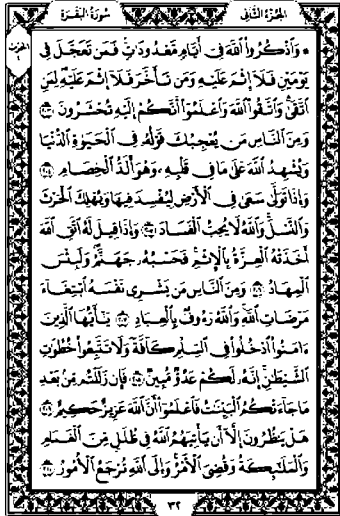 الجزء الثاني سورة البقرة
۞ وَاذْكُرُوا اللَّهَ فِي أَيَّامٍ مَعْدُودَاتٍ فَمَنْ تَعَجَّلَ فِي
يَوْمَيْنِ فَلَا إِثْمَ عَلَيْهِ وَمَنْ تَأَخَّرَ فَلَا إِثْمَ عَلَيْهِ لِمَنِ
اتَّقَى وَاتَّقُوا اللَّهَ وَاعْلَمُوا أَنَّكُمْ إِلَيْهِ تُحْشَرُونَ ٢٠٣
وَمِنَ النَّاسِ مَنْ يُعْجِبُكَ قَوْلُهُ فِي الْحَيَوٰةِ الدُّنْيَا
وَيُشْهِدُ اللَّهَ عَلَى مَا فِي قَلْبِهِ وَهُوَ أَلَدُّ الْخِصَامِ ٢٠٤
وَإِذَا تَوَلَّى سَعَى فِي الْأَرْضِ لِيُفْسِدَ فِيهَا وَيُهْلِكَ الْحَرْثَ
وَالنَّسْلَ وَاللَّهُ لَا يُحِبُّ الْفَسَادَ ٢٠٥ وَإِذَا قِيلَ لَهُ اتَّقِ اللَّهَ
أَخَذَتْهُ الْعِزَّةُ بِالْإِثْمِ فَحَسْبُهُ جَهَنَّمُ وَلَبِئْسَ
الْمِهَادُ ٢٠٦ وَمِنَ النَّاسِ مَنْ يَشْرِي نَفْسَهُ ابْتِغَاءَ
مَرْضَاتِ اللَّهِ وَاللَّهُ رَءُوفٌ بِالْعِبَادِ ٢٠٧ يَٰأَيُّهَا الَّذِينَ
ءَامَنُوا ادْخُلُوا فِي السِّلْمِ كَافَّةً وَلَا تَتَّبِعُوا خُطُوَٰتِ
الشَّيْطَٰنِ إِنَّهُ لَكُمْ عَدُوٌّ مُبِينٌ ٢٠٨ فَإِنْ زَلَلْتُمْ مِنْ بَعْدِ
مَا جَاءَتْكُمُ الْبَيِّنَٰتُ فَاعْلَمُوا أَنَّ اللَّهَ عَزِيزٌ حَكِيمٌ ٢٠٩
هَلْ يَنْظُرُونَ إِلَّا أَنْ يَأْتِيَهُمُ اللَّهُ فِي ظُلَلٍ مِنَ الْغَمَامِ
وَالْمَلَٰئِكَةُ وَقُضِيَ الْأَمْرُ وَإِلَى اللَّهِ تُرْجَعُ الْأُمُورُ ٢١٠
٣٢